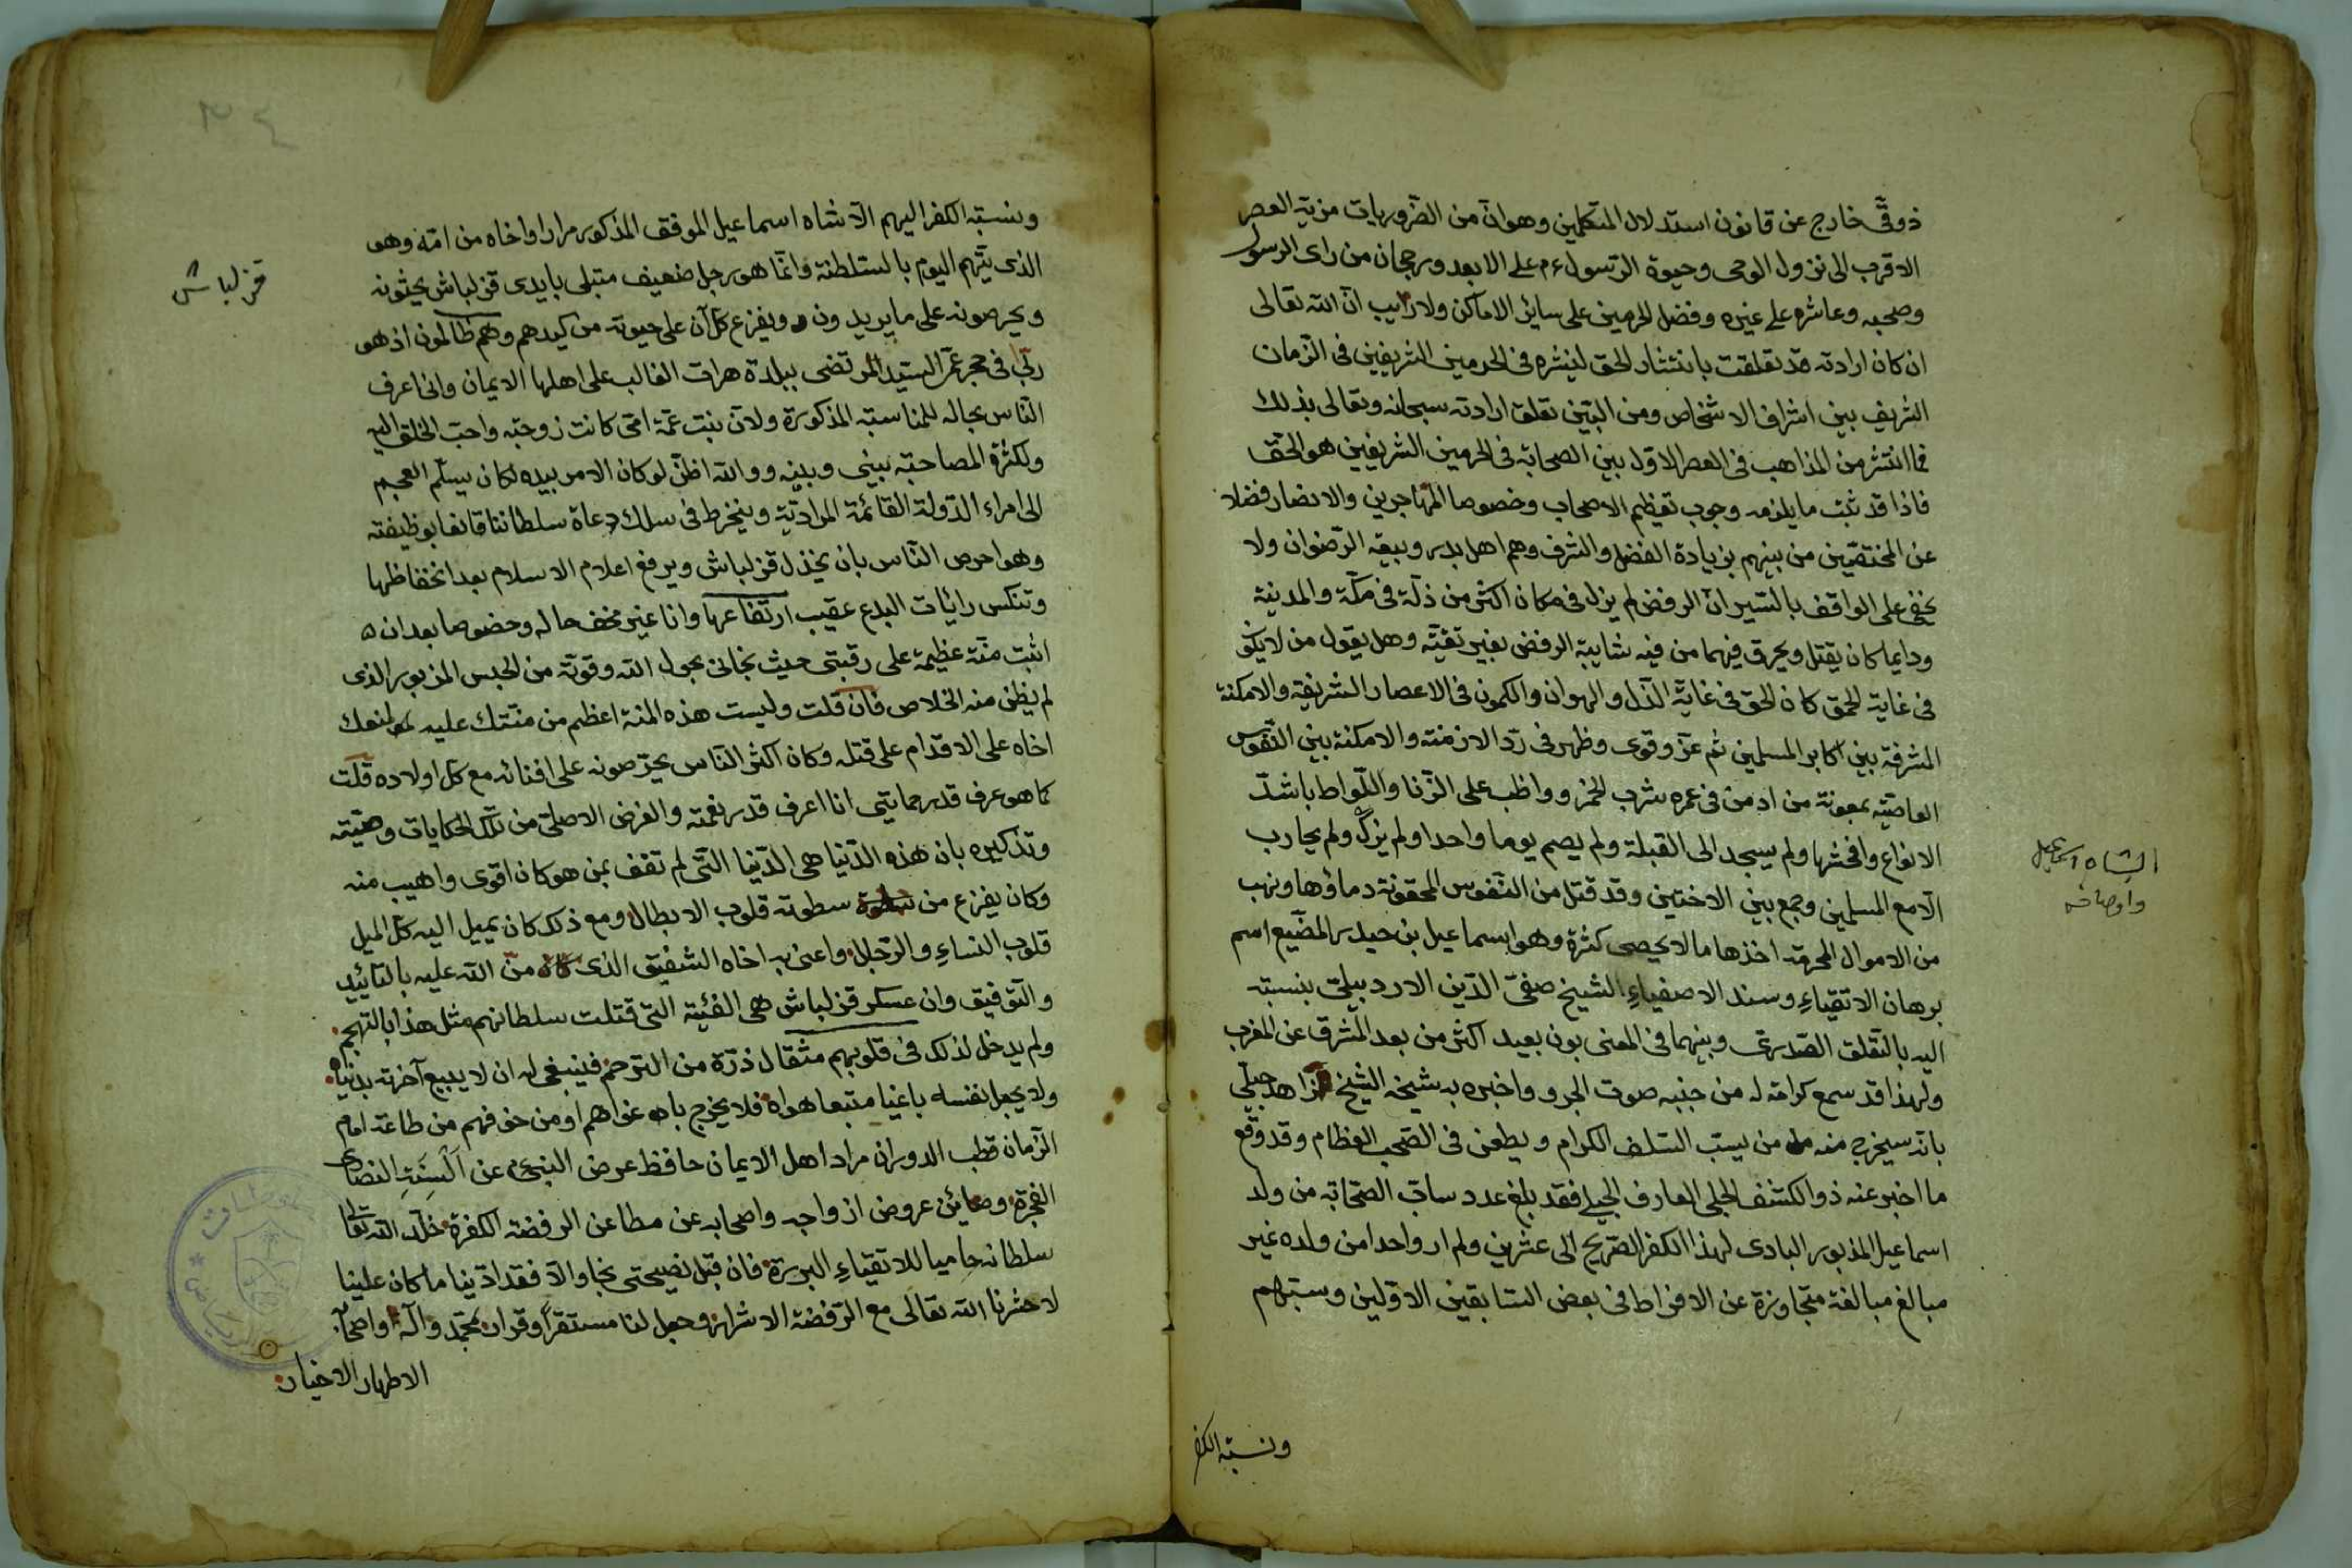 ذوقى خارج عن قانون استدلال المتكلمين وهو ان من الضروريات مزية العصر
الاقرب الى نزول الوحى وحيوة الرسول ءم على الابعد ورجحان من راى الرسول
وصحبه وعاشره على غيره وفضل الحرمين على ساير الاماكن ولا ريب ان الله تعالى
ان كان ارادته قد تعلقت بانتشار الحق لينشره فى الحرمين الشريفين فى الزمان
الشريف بين اشراف الاشخاص ومن البين تعلق ارادته سبحانه وتعالى بذلك
فما انتشر من المذاهب فى العصر الاول بين الصحابة فى الحرمين الشريفين هو الحق
فاذا قد ثبت ما يلزمه وجوب تعظيم الاصحاب وخصوصا المهاجرين والانصار فضلا
عن المختصين من بينهم بزيادة الفضل والشرف وهم اهل بدر وبيعة الرضوان ولا
يخفى على الواقف بالسير ان الرفض لم يزل فى مكان اكثر من ذلة فى مكة والمدينة
ودايما كان يقتل ويحرق فيهما من فيه شايبة الرفض بغير تقية وهل يقول من لا يكن
فى غاية الحمق كان الحق فى غاية الذل والهوان والكمون فى الاعصار الشريفة والامكنة
المشرفة بين اكابر المسلمين ثم عز وقوى وظهر فى رد الازمنة والامكنة بين النفوس
العاصية بمعونة من ادمن فى عمره شرب الخمر وواظب على الزنا واللواط باشد
الانواع وافحشها ولم يسجد الى القبلة ولم يصم يوما واحدا ولم يزك ولم يحارب
الا مع المسلمين وجمع بين الاختين وقد قتل من النفوس المحقونة دماؤها ونهب
من الاموال المحرمة اخذها ما لا يحصى كثرة وهو اسماعيل بن حيدر المضيع اسم
برهان الاتقياء وسند الاصفياء الشيخ صفى الدين الاردبيلى بنسبته
اليه بالتعلق الصدرى وبينهما فى المعنى بون بعيد اكثر من بعد المشرق عن المغرب
ولهذا قد سمع كرامة له من جنبه صوت الجرو واخبره به شيخه الشيخ زاهد جيلى
بانه سيخرج منه من يسب السلف الكرام ويطعن فى الصحب العظام وقد وقع
ما اخبر عنه ذو الكشف الجلى العارف الجيلى فقد بلغ عدد ساب الصحابة من ولد
اسماعيل المذبور البادى لهذا الكفر الصريح الى عشرين ولم ار واحدا من ولده غير
مبالغ مبالغة متجاوزة عن الافراط فى بعض السابقين الاولين وسبهم
الشاه اسماعيل
واوصافه
ونسبة الكفر
ونسبة الكفر اليهم الا شاه اسماعيل الموفق المذكور مرارا واخاه من امه وهو
الذى يتهم اليوم بالسلطنة وانما هو رجل ضعيف مبتلى بايدى قزلباش يحثونه
ويحرصونه على ما يريدون ويفزع كل آن على حيوته من كيدهم وهم ظالمون اذ هو
ربى فى حجر عم السيد المرتضى ببلدة هرات الغالب على اهلها الايمان وانى اعرف
الناس بحاله للمناسبة المذكورة ولان بنت عمة امى كانت زوجته واحب الخلق اليه
ولكثرة المصاحبة بينى وبينه ووالله اظن لو كان الامر بيده لكان يسلم العجم
الى امراء الدولة القائمة المرادية وينخرط فى سلك دعاة سلطاننا قانعا بوظيفته
وهو احرص الناس بان يخذل قزلباش ويرفع اعلام الاسلام بعد انخفاظها
وتنكس رايات البدع عقيب ارتفاعها وانا غير مخف حاله وخصوصا بعد ان
اثبت منة عظيمة على رقبتى حيث نجانى بحول الله وقوته من الحبس المزبور الذى
لم يظن منه الخلاص فان قلت وليست هذه المنة اعظم من منتك عليه لمنعك
اخاه على الاقدام على قتله وكان اكثر الناس يحرصونه على افنائه مع كل اولاده قلت
كما هو عرف قدر حمايتى انا اعرف قدر نعمته والغرض الاصلى من تلك الحكايات وصيته
وتذكيره بان هذه الدنيا هى الدنيا التى لم تقف بمن هو كان اقوى واهيب منه
وكان يفزع من سطوته قلوب الابطال ومع ذلك كان يميل اليه كل الميل
قلوب النساء والرجال واعنى به اخاه الشفيق الذى من الله عليه بالتاييد
والتوفيق وان عسكر قزلباش هى الفئة التى قتلت سلطانهم مثل هذا بالتهجم
ولم يدخل لذلك فى قلوبهم مثقال ذرة من الترحم فينبغى له ان لا يبيع آخرته بدنياه
ولا يجعل نفسه باغيا متبعا هواه فلا يخرج باغواهم او من خوفهم من طاعة امام
الزمان قطب الدوران مراد اهل الايمان حافظ عرض النبى ءم عن السنة النصارى
الفجرة وصائن عروض ازواجه واصحابه عن مطاعن الرفضة الكفرة خلد الله تعالى
سلطانه حاميا للاتقياء البررة فان قبل نصيحتى نجا والا فقد ادينا ما كان علينا
لا حشرنا الله تعالى مع الرفضة الاشرار وجعل لنا مستقرا وقرار بمحمد وآله واصحابه
الاطهار الاخيار
قزلباش
٣٤